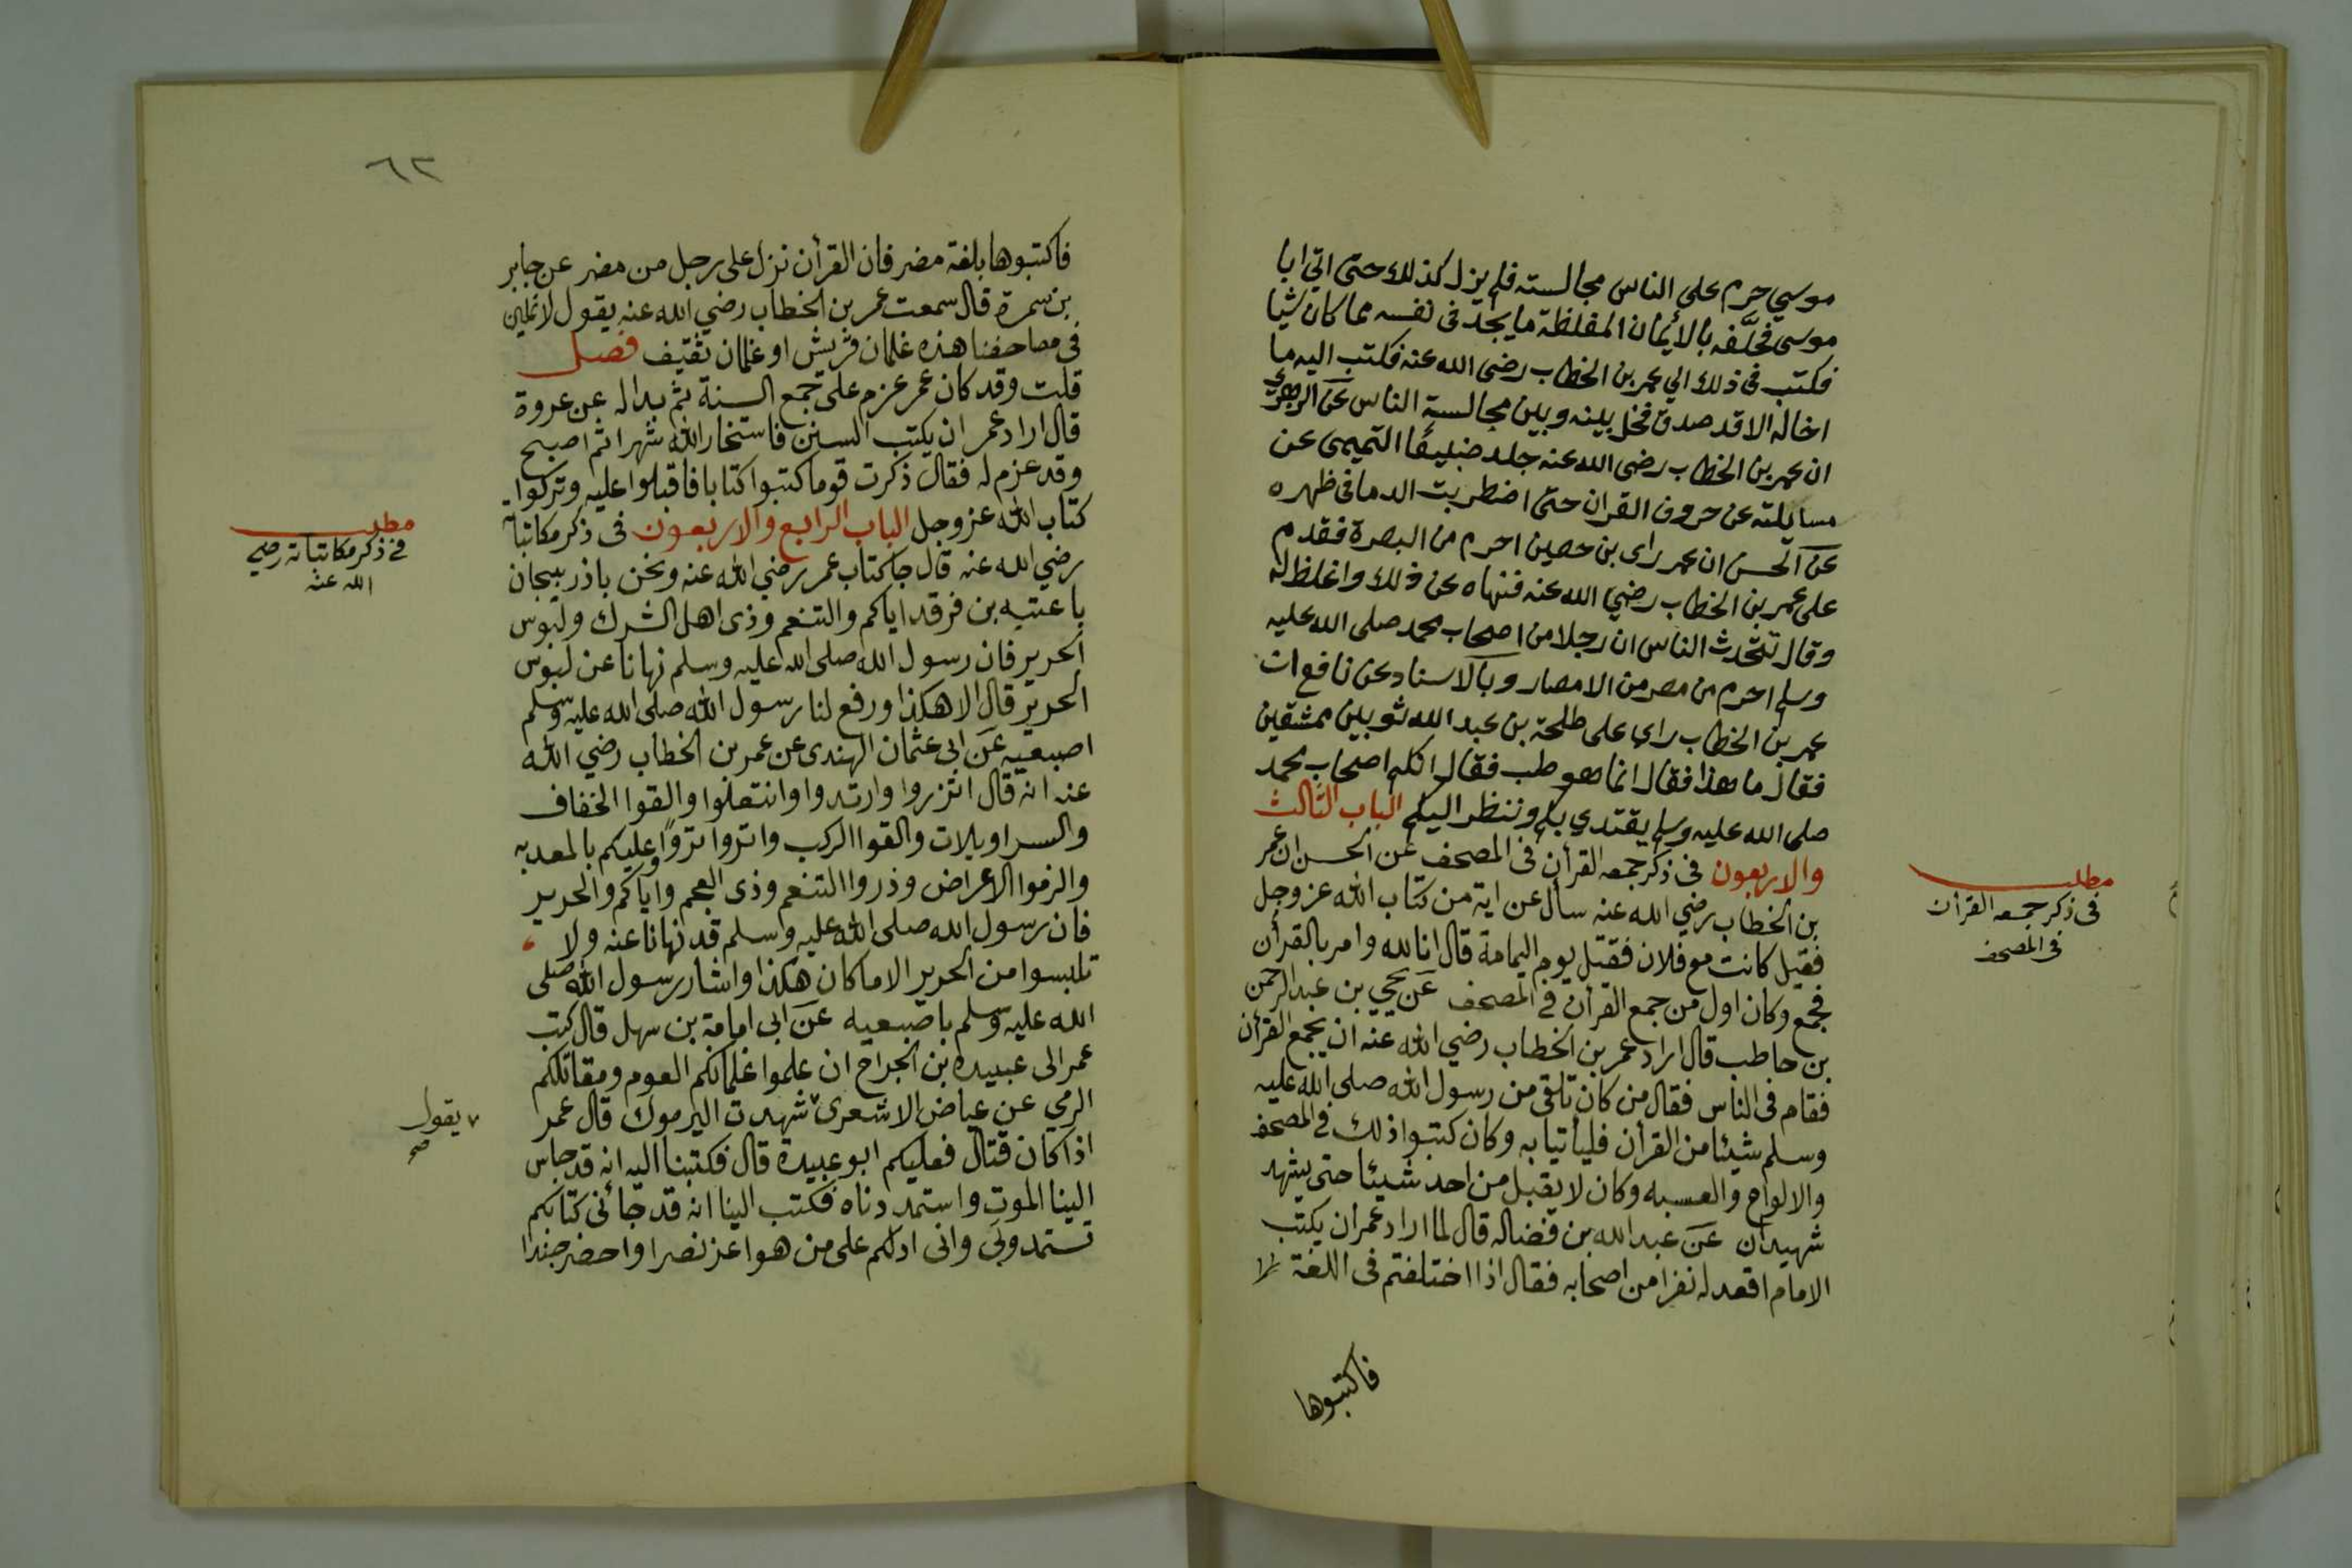 موسي حرم على الناس مجالسته فلم يزل كذلك حتى اتي ابا
موسى فحلَّفه بالأيمان المغلظة ما يجد في نفسه مما كان شيا
فكتب فى ذلك الي عمر بن الخطاب رضى الله عنه فكتب اليه ما
اخاله الا قد صدق فخل بينه وبين مجالسة الناس عن الزهري
ان عمر بن الخطاب رضى الله عنه جلد ضبيعًا التميمى عن
مسايلته عن حروف القران حتى اضطربت الدما فى ظهره
عن الحسن ان عمر راى بن حصين احرم من البصرة فقدم
على عمر بن الخطاب رضي الله عنه فنهاه عن ذلك واغلظ له
وقال تتحدث الناس ان رجلا من اصحاب محمد صلى الله عليه
وسلم احرم من مصر من الامصار وبالاسناد عن نافع ان
عمر بن الخطاب راي على طلحة بن عبد الله ثوبين ممشقين
فقال ما هذا فقال انما هو طب فقال انكم اصحاب محمد
صلى الله عليه وسلم يقتدي بكم وننظر اليكم الباب الثالث
والاربعون فى ذكر جمعه القرأن فى المصحف عن الحسن ان عمر
بن الخطاب رضي الله عنه سأل عن اية من كتاب الله عز وجل
فقيل كانت مع فلان فقتل يوم اليمامة قال انا لله وامر بالقرأن
فجمع وكان اول من جمع القرأن في المصحف عن يحيي بن عبد الرحمن
بن حاطب قال اراد عمر بن الخطاب رضي الله عنه ان يجمع القرأن
فقام فى الناس فقال من كان تلقى من رسول الله صلى الله عليه
وسلم شيئا من القرأن فليأتيا به وكان كتبوا ذلك في المصحف
والالواح والعسبه وكان لا يقبل من احد شيئا حتى يشهد
شهيدان عن عبد الله بن فضاله قال لما اراد عمر ان يكتب
الامام اقعد له نفرا من اصحابه فقال اذا اختلفتم فى اللغة
فاكتبوها
مطلب
فى ذكر جمعه القرأن
فى المصحف
٦٣
فاكتبوها بلغة مضر فان القرأن نزل على رجل من مضر عن جابر
بن سمرة قال سمعت عمر بن الخطاب رضي الله عنه يقول لا يملين
فى مصاحفنا هذه غلمان قريش او غلمان ثقيف فصل
قلت وقد كان عمر عزم على جمع السنة ثم بدا له عن عروة
قال اراد عمر ان يكتب السنن فاستخار الله شهرا ثم اصبح
وقد عزم له فقال ذكرت قوما كتبوا كتابا فاقبلوا عليه وتركوا
كتاب الله عز وجل الباب الرابع والاربعون فى ذكر مكاتباته
رضي الله عنه قال جا كتاب عمر رضي الله عنه ونحن باذربيجان
يا عتبه بن فرقد اياكم والتنعم وذى اهل الشرك ولبوس
الحرير فان رسول الله صلى الله عليه وسلم نهانا عن لبوس
الحرير قال الا هكذا ورفع لنا رسول الله صلى الله عليه وسلم
اصبعيه عن ابى عثمان الهندى عن عمر بن الخطاب رضي الله
عنه انه قال اتزروا وارتدوا وانتعلوا والقوا الخفاف
والسراويلات والقوا الركب وانزوا نزوًا وعليكم بالمعديه
والزموا الاعراض وذروا التنعم وذى العجم واياكم والحرير
فان رسول الله صلى الله عليه وسلم قد نهانا عنه ولا
تلبسوا من الحرير الا ما كان هكذا واشار رسول الله صلى
الله عليه وسلم باصبعيه عن ابى امامة بن سهل قال كتب
عمر الى عبيده بن الجراح ان علموا غلمانكم العوم ومقاتلكم
الرمي عن عياض الاشعرى شهدت اليرموك قال عمر
اذا كان قتال فعليكم ابو عبيدة قال فكتبنا اليه انه قد جاس
الينا الموت واستمددناه فكتب الينا انه قد جائنى كتابكم
تستمدونى وانى ادلكم على من هو اعز نصرا واحضر جندا
مطلب
فى ذكر مكاتباته رضي
الله عنه
يقول
صح